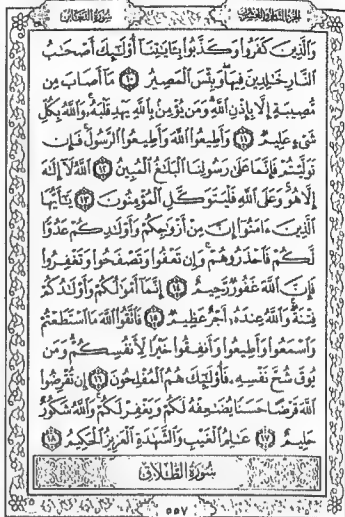 الجزء الثامن والعشرون سورة التغابن
وَالَّذِينَ كَفَرُوا وَكَذَّبُوا بِآيَاتِنَا أُولَٰئِكَ أَصْحَابُ
النَّارِ خَالِدِينَ فِيهَا وَبِئْسَ الْمَصِيرُ ١٠ مَا أَصَابَ مِن
مُّصِيبَةٍ إِلَّا بِإِذْنِ اللَّهِ وَمَن يُؤْمِن بِاللَّهِ يَهْدِ قَلْبَهُ وَاللَّهُ بِكُلِّ
شَيْءٍ عَلِيمٌ ١١ وَأَطِيعُوا اللَّهَ وَأَطِيعُوا الرَّسُولَ فَإِن
تَوَلَّيْتُمْ فَإِنَّمَا عَلَىٰ رَسُولِنَا الْبَلَاغُ الْمُبِينُ ١٢ اللَّهُ لَا إِلَٰهَ
إِلَّا هُوَ وَعَلَى اللَّهِ فَلْيَتَوَكَّلِ الْمُؤْمِنُونَ ١٣ يَا أَيُّهَا
الَّذِينَ آمَنُوا إِنَّ مِنْ أَزْوَاجِكُمْ وَأَوْلَادِكُمْ عَدُوًّا
لَّكُمْ فَاحْذَرُوهُمْ وَإِن تَعْفُوا وَتَصْفَحُوا وَتَغْفِرُوا
فَإِنَّ اللَّهَ غَفُورٌ رَّحِيمٌ ١٤ إِنَّمَا أَمْوَالُكُمْ وَأَوْلَادُكُمْ
فِتْنَةٌ وَاللَّهُ عِندَهُ أَجْرٌ عَظِيمٌ ١٥ فَاتَّقُوا اللَّهَ مَا اسْتَطَعْتُمْ
وَاسْمَعُوا وَأَطِيعُوا وَأَنفِقُوا خَيْرًا لِّأَنفُسِكُمْ وَمَن
يُوقَ شُحَّ نَفْسِهِ فَأُولَٰئِكَ هُمُ الْمُفْلِحُونَ ١٦ إِن تُقْرِضُوا
اللَّهَ قَرْضًا حَسَنًا يُضَاعِفْهُ لَكُمْ وَيَغْفِرْ لَكُمْ وَاللَّهُ شَكُورٌ
حَلِيمٌ ١٧ عَالِمُ الْغَيْبِ وَالشَّهَادَةِ الْعَزِيزُ الْحَكِيمُ ١٨
سُورَةُ الطَّلَاقِ
٥٥٧